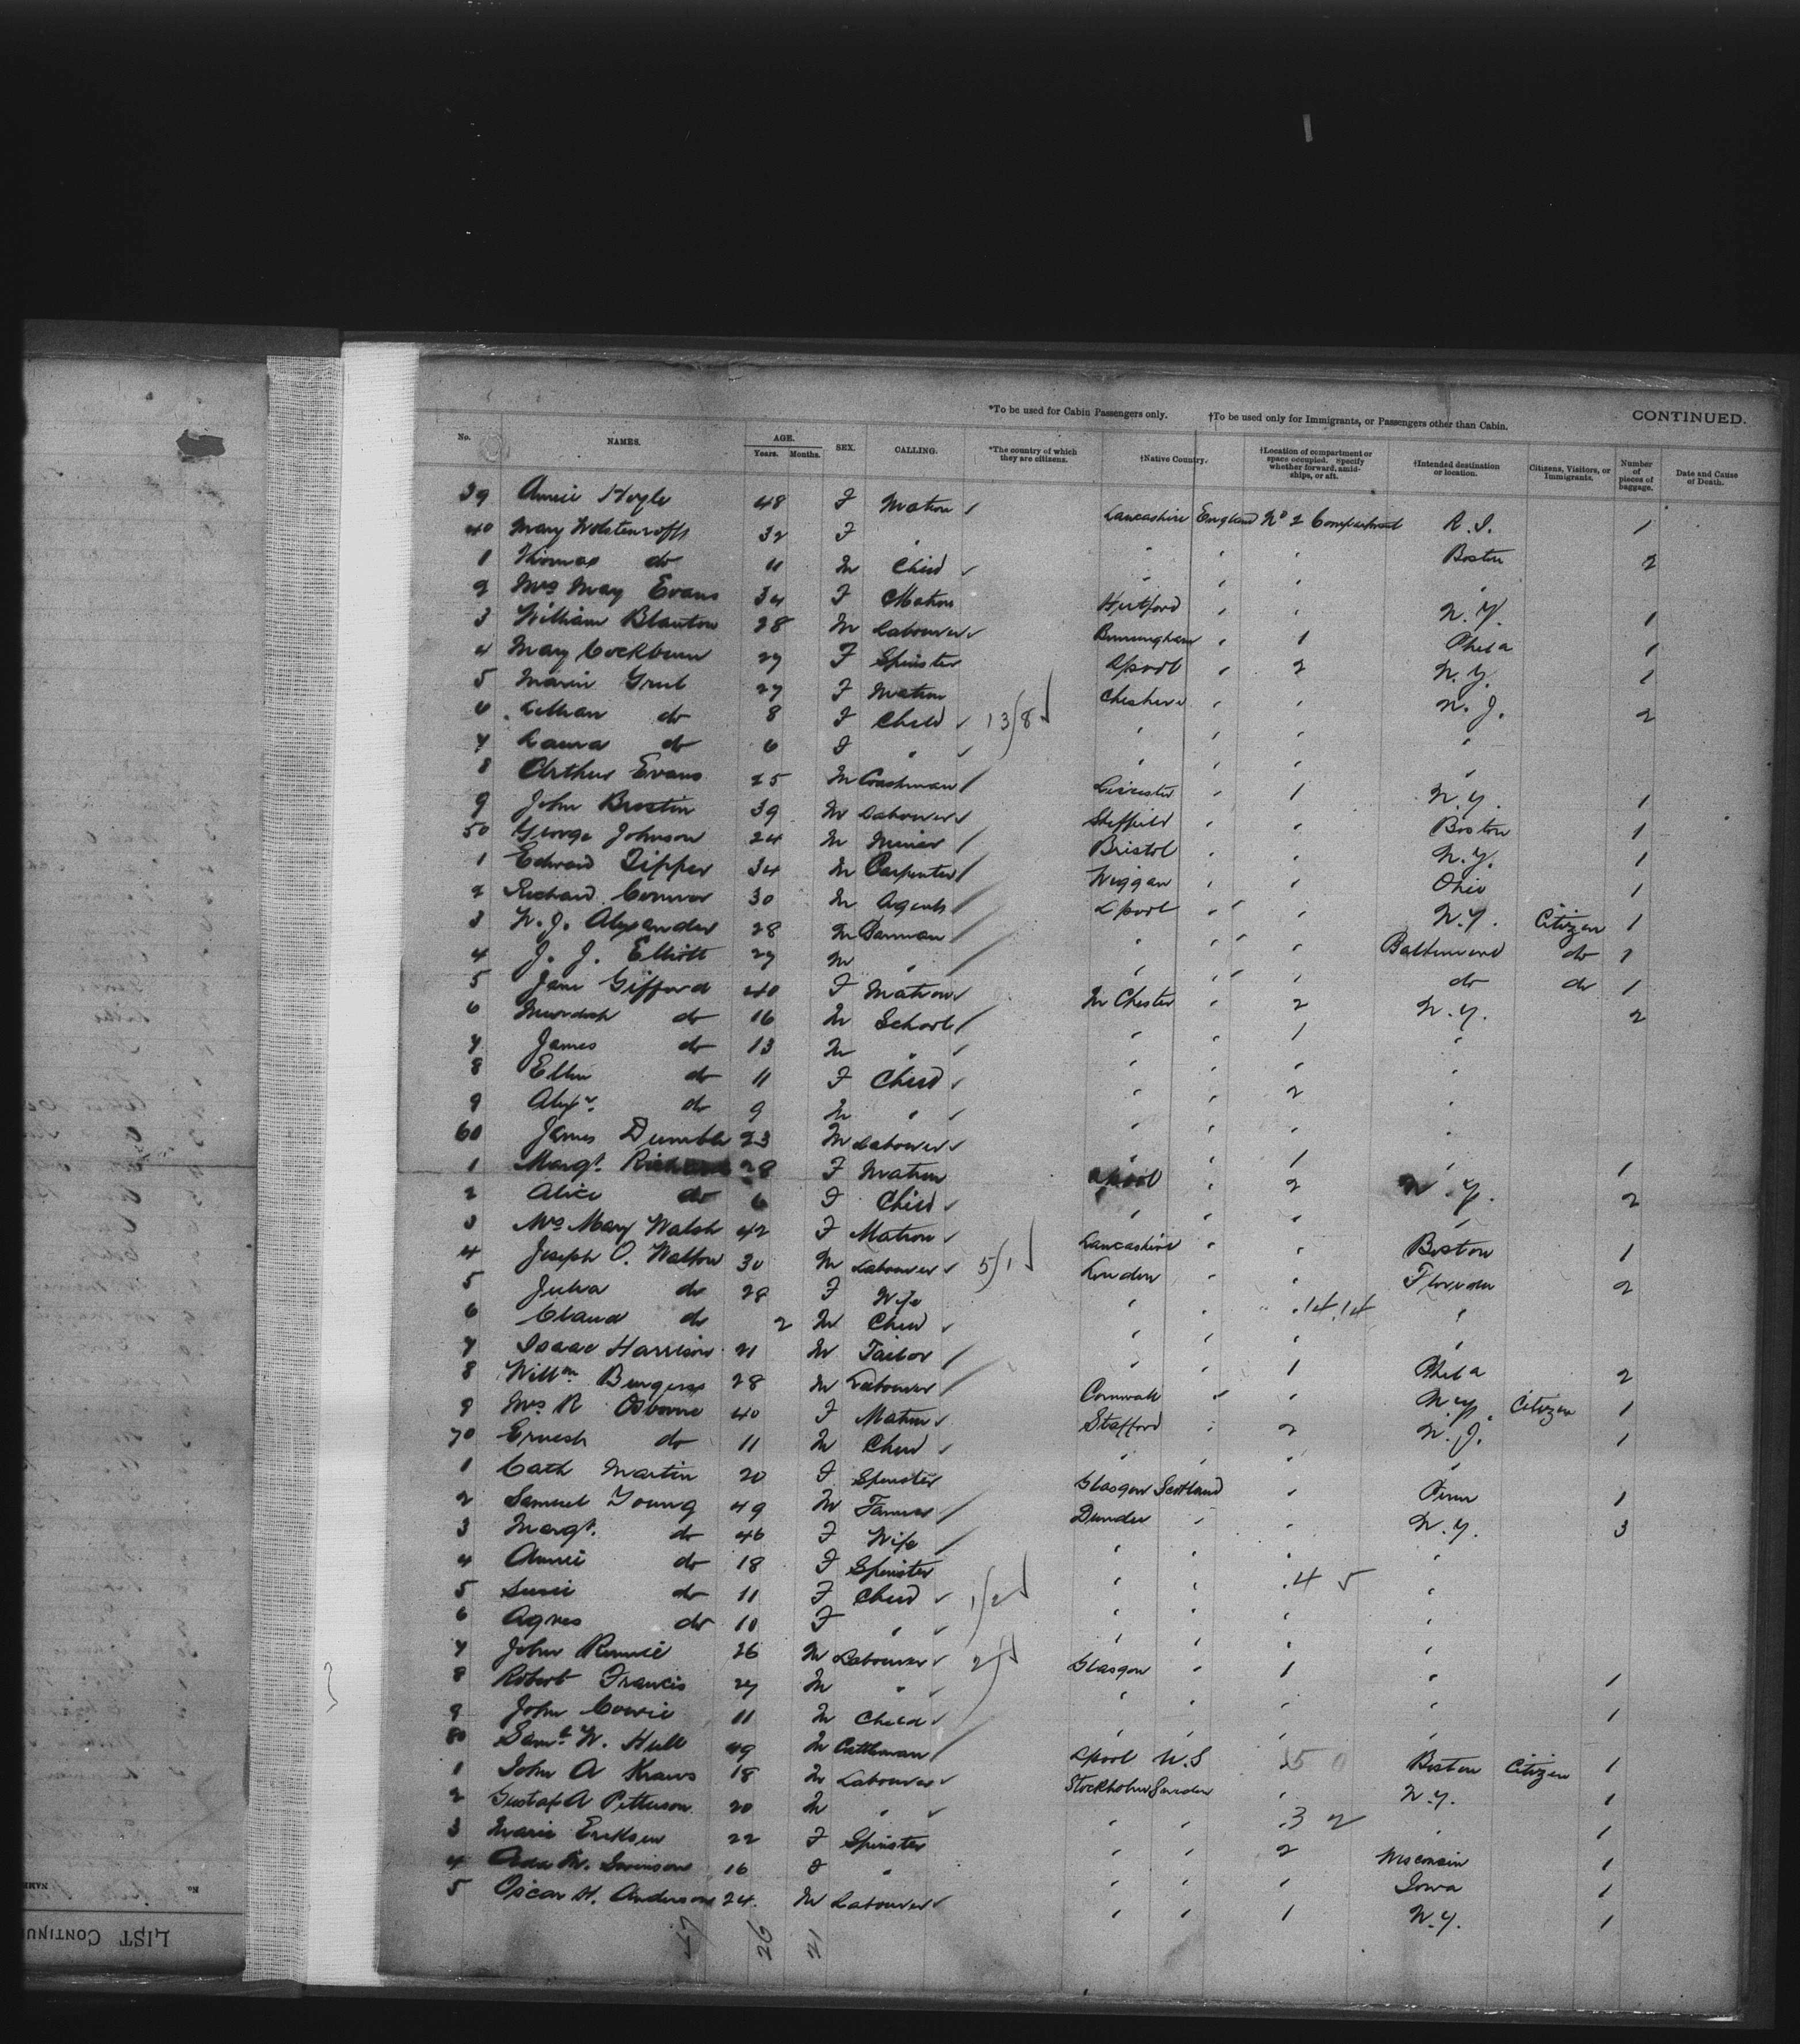 *To be used for Cabin Passengers only. †To be used only for Immigrants, or Passengers other than Cabin. CONTINUED.
No. NAMES. AGE. Years. Months. SEX. CALLING. *The country of which they are citizens. †Native Country. †Location of compartment or space occupied. Specify whether forward, amidships, or aft. †Intended destination or location. Citizens, Visitors, or Immigrants. Number of pieces of baggage. Date and Cause of Death.
39 Annie Hoyle 48 F Matron Lancashire England No 2 Compartment R. I. 1
40 Mary 32 F " " " " Boston 2
1 Thomas do 11 M Child " " " "
2 Mrs May Evans 34 F Matron Hertford " " N. Y. 1
3 William Blanton 28 M Labourer Birmingham " 1 Phila 1
4 Mary Cockburn 27 F Spinster Lpool " 2 N. Y. 1
5 27 F Matron Cheshire " " N. J. 2
6 Lillian do 8 F Child 13/8 " " " "
7 Laura do 6 F " " " " "
8 Arthur Evans 25 M Coachman Leicester " 1 N. Y. 1
9 John 39 M Labourer Sheffield " " Boston 1
50 George Johnson 24 M Miner Bristol " " N. Y. 1
1 Edward Tipper 34 M Carpenter Wiggan " " Ohio 1
2 Richard Connor 30 M Agent Lpool " " N. Y. Citizen 1
3 W. J. Alexander 28 M Barman " " " Baltimore do 1
4 J. J. Elliott 27 M " " " " do do 1
5 Jane Gifford 40 F Matron M Chester " 2 N. Y. 2
6 Murdoch do 16 M School " " 1 "
7 James do 13 M " " " " "
8 Ellen do 11 F Child " " 2 "
9 Alexr do 9 M " " " " "
60 James Dumble 23 M Labourer " " 1 " 1
1 Margt. 28 F Matron Lpool " 2 N. Y. 2
2 Alice do 6 F Child " " " "
3 Mrs Mary Walsh 42 F Matron Lancashire " " Boston 1
4 Joseph O. Walton 30 M Labourer 5/1 London " " Florida 2
5 Julia do 28 F Wife " " " 14 14 "
6 Claud do 2 M Child " " " "
7 Isaac Harrison 21 M Tailor " " 1 Phila 2
8 Willm Burgess 28 M Labourer Cornwall " " N. Y. Citizen 1
9 Mrs R Osborne 40 F Matron Stafford " 2 N. J. 1
70 Ernest do 11 M Child " " " "
1 Cath Martin 20 F Spinster Glasgow Scotland " Penn 1
2 Samuel Young 49 M Farmer Dundee " " N. Y. 3
3 Margt. do 46 F Wife " " " "
4 Annie do 18 F Spinster " " " 4 5 "
5 Susie do 11 F Child 1/2 " " " "
6 Agnes do 10 F " " " " "
7 John Rennie 26 M Labourer Glasgow " 1 " 1
8 Robert Francis 27 M " " " " " 1
9 John Cowie 11 M Child " " " "
80 Saml W. Hull 49 M Cattleman Lpool U.S 50 Boston Citizen 1
1 John A Kraus 18 M Labourer Stockholm Sweden " N. Y. 1
2 Gustaf A Petterson 20 M " " " " 3 2 " 1
3 Marie Eriksen 22 F Spinster " " 2 Wisconsin 1
4 Ada M. Swinson 16 F " " " " Iowa 1
5 Oscar H. Anderson 24 M Labourer " " 1 N. Y. 1
47 26 21
LIST CONTINU
No
NAME